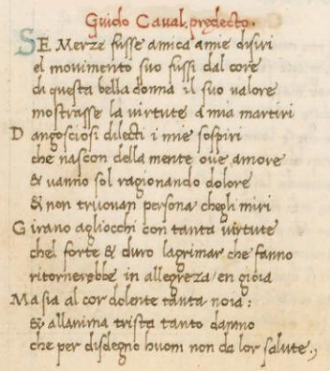 Guido Caval. predecto.
SE Merze fusse amica amie disiri
el movimento suo fussi dal core
di questa bella donna il suo valore
mostrasse la virtute a mia martiri
D angosciosi dilecti i mie sospiri
che nascon della mente oue amore
& vanno sol ragionando dolore
& non truouan persona chegli miri
Girano agliocchi con tanta virtute
chel forte & duro lagrimar che fanno
ritornerebbe in allegreza / en gioia
Ma sia al cor dolente tanta noia :
& allanima trista tanto danno
che per disdegno huom non da lor salute .,